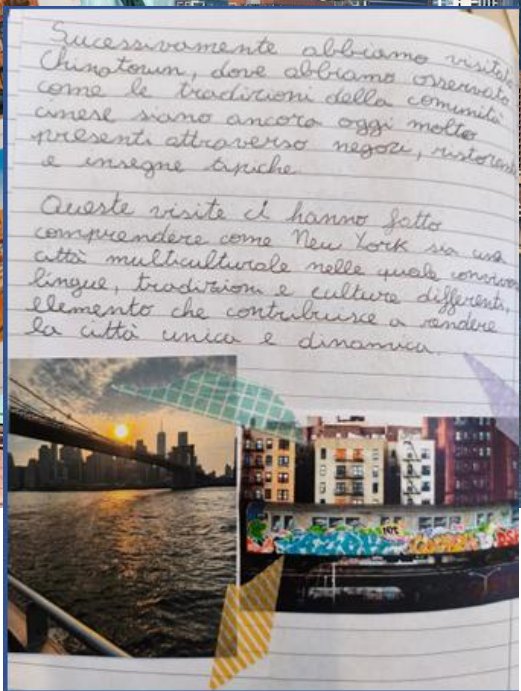 Sucessivamente abbiamo visitato
Chinatown, dove abbiamo osservato
come le tradizioni della comunità
cinese siano ancora oggi molto
presenti attraverso negozi, ristoranti
e insegne tipiche.
Queste visite ci hanno fatto
comprendere come New York sia una
città multiculturale nelle quale convivono
lingue, tradizioni e culture differenti,
elemento che contribuisce a rendere
la città unica e dinamica.